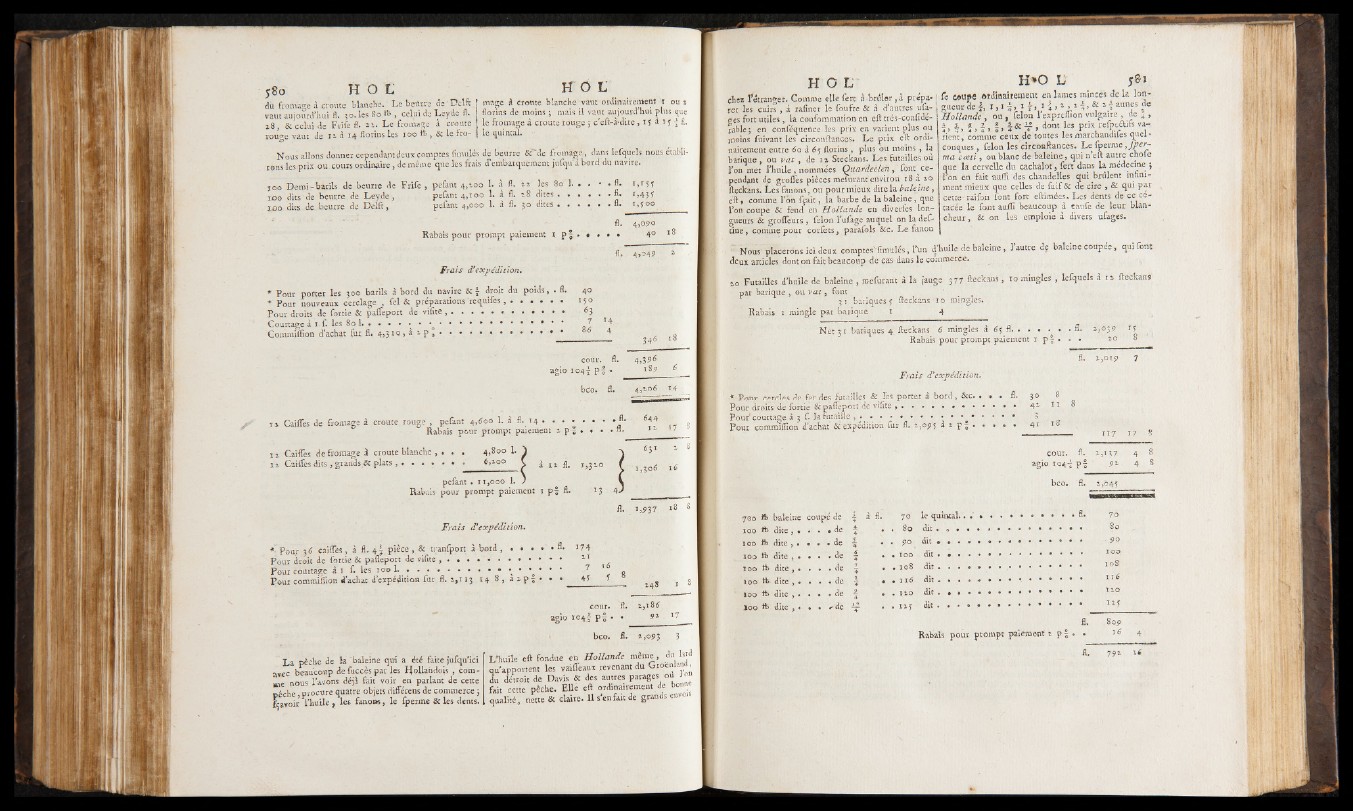 580 HOL HOL
du fromage à croute blanche. Le beurre de Delft
vaut aujourd'hui fl. 30. les 80 ℔, celui de Leyde fl.
28, & celui de Frise fl. 22. Le fromage à croute
rouge vaut de 12 à 14 florins les 100 ℔, & le fro-
mage à croute blanche vaut ordinairement 1 ou 2
florins de moins ; mais il vaut aujourd'hui plus que
le fromage à croute rouge ; c'est-à-dire, 15 à 15 ½ fl.
le quintal.
Nous allons donner cependant deux comptes simulés de beurre & de fromage, dans lesquels nous établi-
rons les prix au cours ordinaire, de même que les frais d'embarquement jusqu'à bord du navire.
100 Demi-barils de beurre de Frise, pesant 4,200 l. à fl. 22 les 80 l. . . . . fl. 1,155
100 dits de beurre de Leyde, pesant 4,100 l. à fl. 28 dites . . . . . . fl. 1,435
100 dits de beurre de Delft, pesant 4,000 l. à fl. 30 dites . . . . . . fl. 1,500
fl. 4,090
Rabais pour prompt paiement 1 p% . . . . . 40 18
fl. 4,049 2
Frais d'expédition.
* Pour porter les 300 barils à bord du navire & ½ droit du poids, . fl. 40
* Pour nouveaux cerclage, sel & préparations requises, . . . . . . 150
Pour droits de sortie & passeport de visite, . . . . . . . . . . . 63
Courtage à 1 s. les 80 l. . . . . . . . . . . . . . . . . 7 14
Commission d'achat sur fl. 4,310, à 2 p% . . . . . . . . . . . . 86 4
346 18
cour. fl. 4,396
agio 104½ p% . 189 6
bco. fl. 4,206 14
12 Caisses de fromage à croute rouge, pesant 4,600 l. à fl. 14 . . . . . . . . fl. 644
Rabais pour prompt paiement 2 p% . . . . fl. 12 17 8
631 2 8
12 Caisses de fromage à croute blanche, . . . 4,800 l.
12 Caisses dits, grands & plats, . . . . . . . 6,200
à 12 fl. 1,320
1,306 16
pesant . 11,000 l.
Rabais pour prompt paiement 1 p% fl. 13 4
fl. 1,937 18 8
Frais d'expédition.
* Pour 36 caisses, à fl. 4½ pièce, & transport à bord, . . . . . fl. 174
Pour droit de sortie & passeport de visite, . . . . . . . . . . . 21
Pour courtage à 1 s. les 100 l. . . . . . . . . . . . . . . 7 16
Pour commission d'achat d'expédition sur fl. 2,113 14 8, à 2 p% . . . 45 5 8
248 1 8
cour. fl. 2,186
agio 104½ p% . . 92 17
bco. fl. 2,093 3
La pêche de la baleine qui a été faite jusqu'ici
avec beaucoup de succès par les Hollandois, com-
me nous l'avons déjà fait voir en parlant de cette
pêche, procure quatre objets différens de commerce ;
sçavoir l'huile, les fanons, le sperme & les dents.
L'huile est fondue en Hollande même, du lard
qu'apportent les vaisseaux revenant du Groenland,
du détroit de Davis & des autres parages où l'on
fait cette pêche. Elle est ordinairement de bonne
qualité, nette & claire. Il s'en fait de grands envois
HOL HOL 581
chez l'étranger. Comme elle sert à brûler, à prépa-
rer les cuirs, à rafiner le soufre & à d'autres usa-
ges fort utiles, la consommation en est très-considé-
rable ; en conséquence les prix en varient plus ou
moins suivant les circonstances. Le prix est ordi-
nairement entre 60 à 65 florins, plus ou moins, la
barique, ou vat, de 12 Steckans. Les futailles où
l'on met l'huile, nommées Quardeelen, sont ce-
pendant de grosses pièces mesurant environ 18 à 20
steckans. Les fanons, ou pour mieux dire la baleine,
est, comme l'on sçait, la barbe de la baleine, que
l'on coupe & fend en Hollande en diverses lon-
gueurs & grosseurs, selon l'usage auquel on la des-
tine, comme pour corsets, parasols &c. Le fanon
se coupe ordinairement en lames minces de la lon-
gueur de
aunes de
Hollande, ou, selon l'expression vulgaire, de
dont les prix respectifs va-
rient, comme ceux de toutes les marchandises quel-
conques, selon les circonstances. Le sperme, sper-
ma cæti, ou blanc de baleine, qui n'est autre chose
que la cervelle du cachalot, sert dans la médecine ;
l'on en fait aussi des chandelles qui brûlent infini-
ment mieux que celles de suif & de cire, & qui par
cette raison sont fort estimées. Les dents de ce cé-
tacée le sont aussi beaucoup à cause de leur blan-
cheur, & on les emploie à divers usages.
Nous placerons ici deux comptes simulés, l'un d'huile de baleine, l'autre de baleine coupée, qui sont
deux articles dont on fait beaucoup de cas dans le commerce.
20 Futailles d'huile de baleine, mesurant à la jauge 377 steckans, 10 mingles, lesquels à 12 steckans
par barique, ou vat, font
31 bariques 5 steckans 10 mingles.
Rabais 1 mingle par barique 1 4
Net 31 bariques 4 steckans 6 mingles à 65 fl. . . . . . . fl. 2,039 15
Rabais pour prompt paiement 1 p% . . . 20 8
fl. 2,019 7
Frais d'expédition.
* Pour cercles de fer des futailles & les porter à bord, &c. . . . fl. 30 8
Pour droits de sortie & passeport de visite, . . . . . . . . . . . 42 11 8
Pour courtage à 3 s. la futaille, . . . . . . . . . . . . . . 3
Pour commission d'achat & expédition sur fl. 2,095 à 2 p% . . . . . 41 18
117 17 8
cour. fl. 2,137 4 8
agio 104½ p% 92 4 8
bco. fl. 2,045
700 ℔ baleine coupé de à fl. 70 le quintal. . . . . . . . . . . . . fl. 70
100 ℔ dite, . . . . de . . 80 dit . . . . . . . . . . . . . . . 80
100 ℔ dite, . . . . de . . 90 dit . . . . . . . . . . . . . . . 90
100 ℔ dite, . . . . de . . 100 dit . . . . . . . . . . . . . . . 100
100 ℔ dite, . . . . de . . 108 dit . . . . . . . . . . . . . . . 108
100 ℔ dite, . . . . de . . 116 dit . . . . . . . . . . . . . . . 116
100 ℔ dite, . . . . de . . 120 dit . . . . . . . . . . . . . . . 120
100 ℔ dite, . . . . de . . 125 dit . . . . . . . . . . . . . . . 125
fl. 809
Rabais pour prompt paiement 2 p% . . 16 4
fl. 792 16